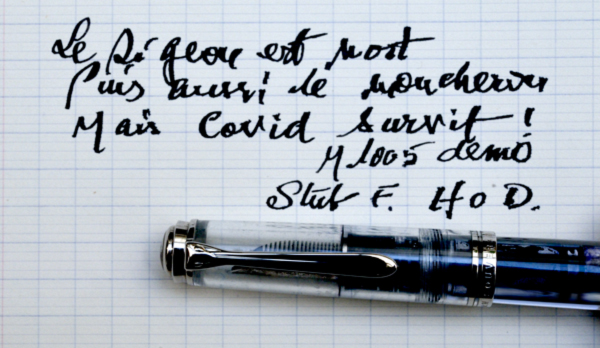 Le Pigeon est mort
Puis aussi le moucheron
Mais Covid Survit !
M 1005 demo
Stub F. H o D.